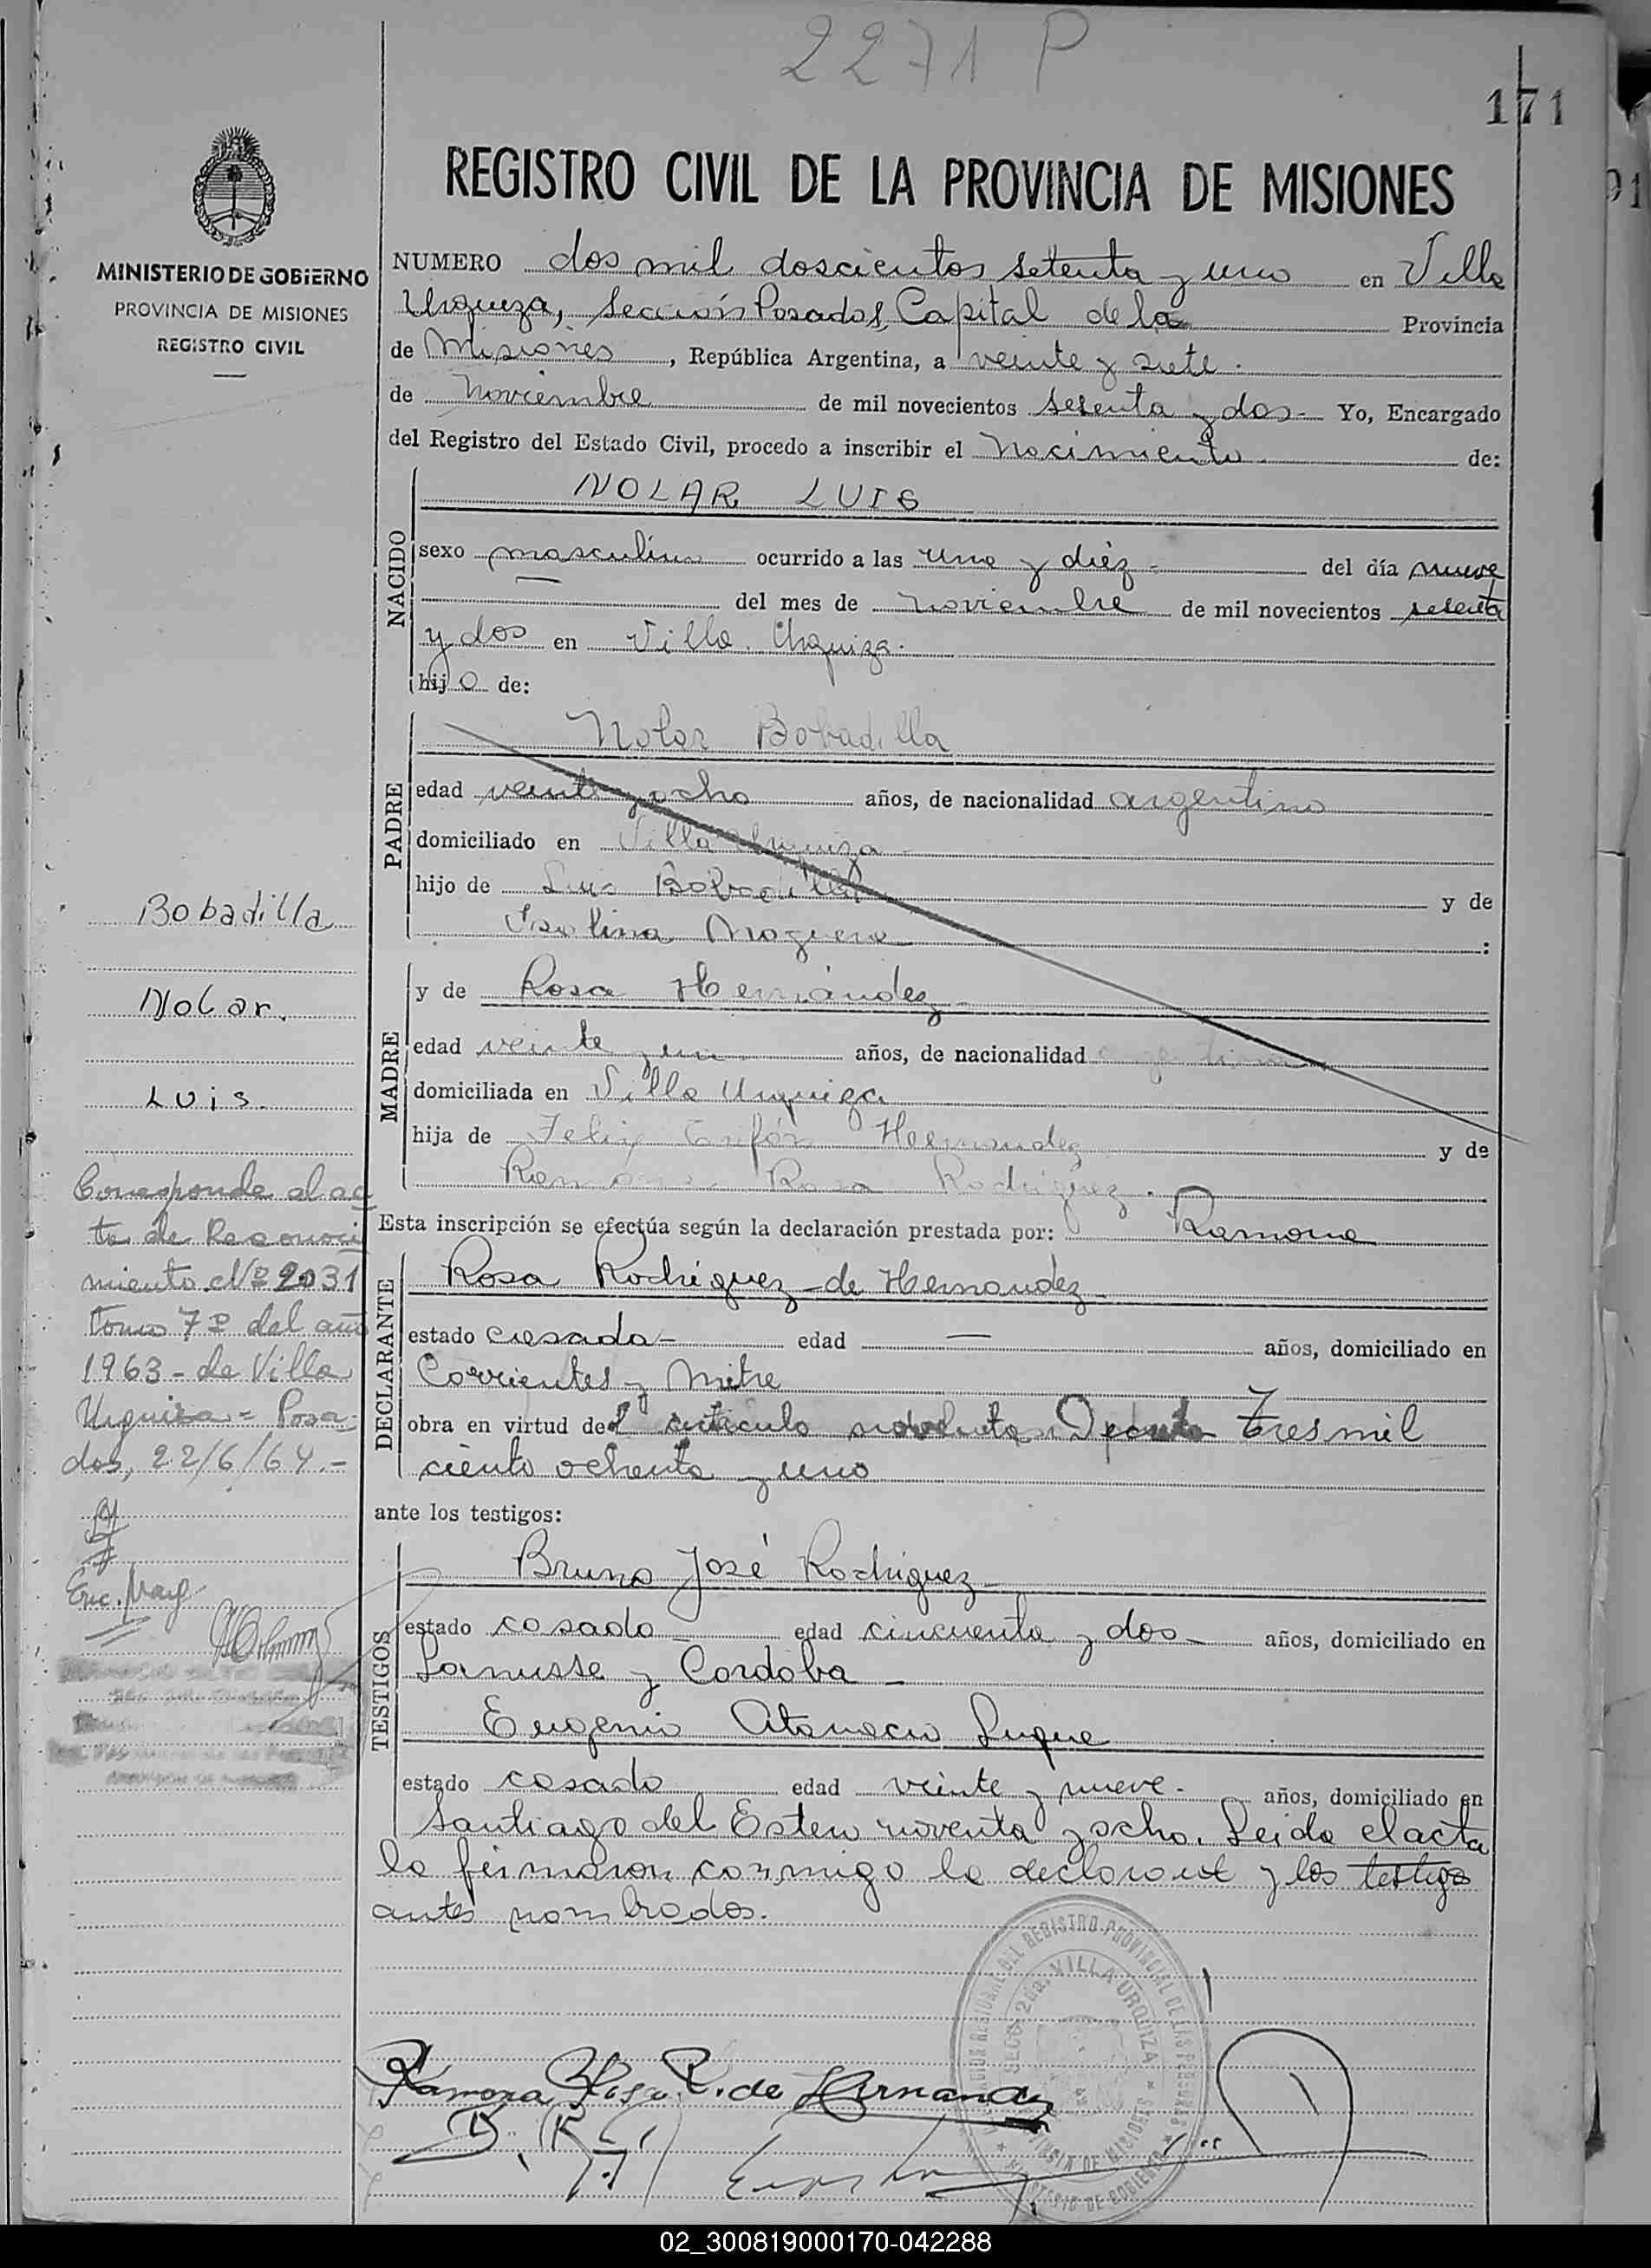 2271 P
171
REGISTRO CIVIL DE LA PROVINCIA DE MISIONES
MINISTERIO DE GOBIERNO
PROVINCIA DE MISIONES
REGISTRO CIVIL
NUMERO dos mil doscientos setenta y uno en Villa
Urquiza, Sección Posadas, Capital de la Provincia
de Misiones, República Argentina, a veinte y siete.
de Noviembre de mil novecientos sesenta y dos- Yo, Encargado
del Registro del Estado Civil, procedo a inscribir el Nacimiento. de:
NACIDO
NOLAR LUIS
sexo masculino ocurrido a las una y diéz - del día nueve
— del mes de noviembre de mil novecientos sesenta
y dos en Villa Urquiza.
hijo de:
PADRE
Nolar Bobadilla
edad veinte y ocho años, de nacionalidad argentino
domiciliado en Villa Urquiza -
hijo de Luis Bobadilla y de
:
MADRE
y de Rosa Hernández
edad veinte y un años, de nacionalidad argentina
domiciliada en Villa Urquiza
hija de Felix Hernandez y de
Ramona Rosa Rodriguez.
Esta inscripción se efectúa según la declaración prestada por: Ramona
DECLARANTE
Rosa Rodriguez de Hernandez
estado casada- edad — años, domiciliado en
Corrientes y Mitre
obra en virtud del artículo Decreto Tres mil
ciento ochenta y uno
ante los testigos:
TESTIGOS
Bruno José Rodriguez
estado casado edad cincuenta y dos - años, domiciliado en
Lanusse y Cordoba -
Eugenio Atanacio Luque
estado casado edad veinte y nueve. años, domiciliado en
Santiago del Estero noventa y ocho. Leida el acta
la firmaron conmigo la declarante y los testigos
antes nombrados.
Bobadilla
Nolar.
Luis.
Corresponde al ac
ta de Reconoci
miento Nº 2031
tomo 7º del año
1963 - de Villa
Urquiza - Posa-
das, 22/6/64.-
Ramona Rosa R. de Hernandez
VILLA URQUIZA
02_300819000170-042288